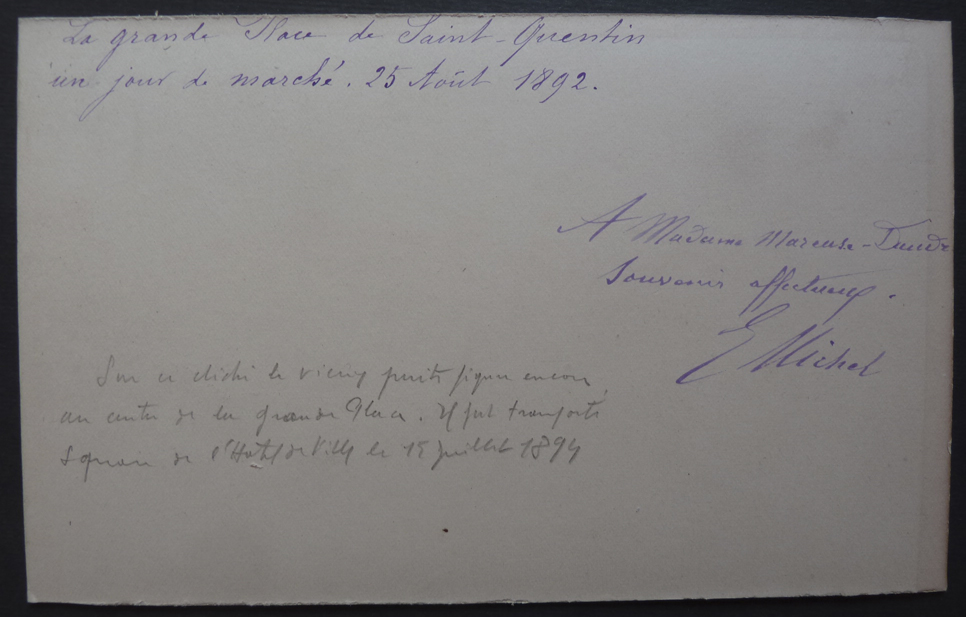 La grande Place de Saint-Quentin
un jour de marché. 25 Août 1892.
A Madame
Souvenir affectueux.
E Michel
Sur ce cliché le vieux puits figure encore
au centre de la grande Place. Il fut transporté
square de l'Hôtel de Ville le 15 Juillet 1894